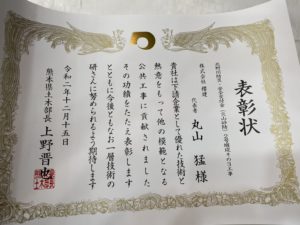 表彰状
株式会社 櫻建
代表者
丸山 猛 様
貴社は下請企業として優れた技術と
熱意をもって他の模範となる
公共工事に貢献されました
その功績をたたえ表彰します
とともに今後ともなお一層技術の
研さんに努められるよう期待します
令和二年十二月十五日
熊本県土木部長 上野晋也